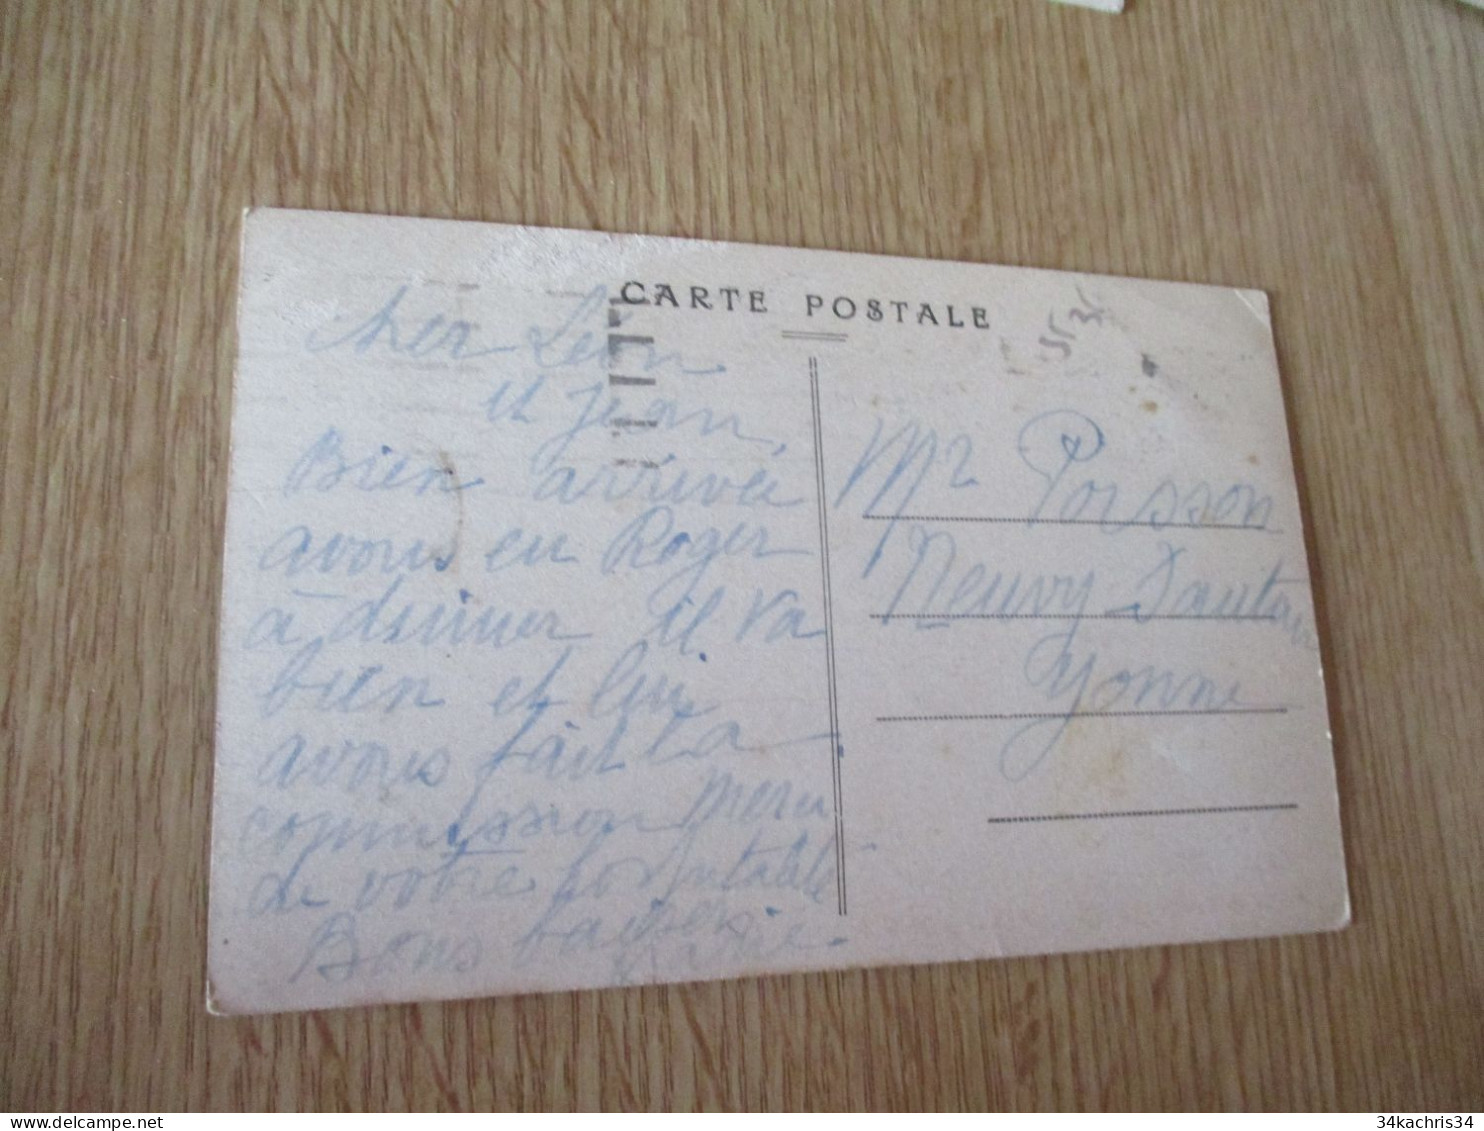 CARTE POSTALE
Cher Léon
et Jean,
Bien arrivée
avons eu Roger
à dîner il va
bien et lui
avons fait la
commission merci
de votre hospitalité
Bons baisers
Mr Poisson
Neuvy Sautour
Yonne
34kachris34
delcampe.net